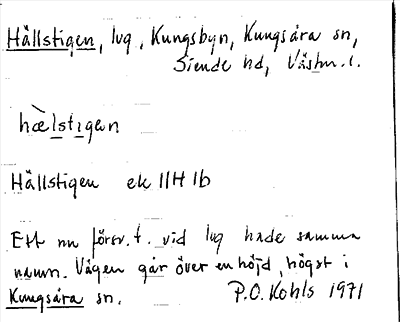 Hällstigen, lvg, Kungsbyn, Kungsåra sn,
Siende hd, Västm.l.
hæ̀lstıgen
Hällstigen ek 11H 1b
Ett nu försv. t. vid lvg hade samma
namn. Vägen går över en höjd, högst i
Kungsåra sn. P.O. Kohls 1971